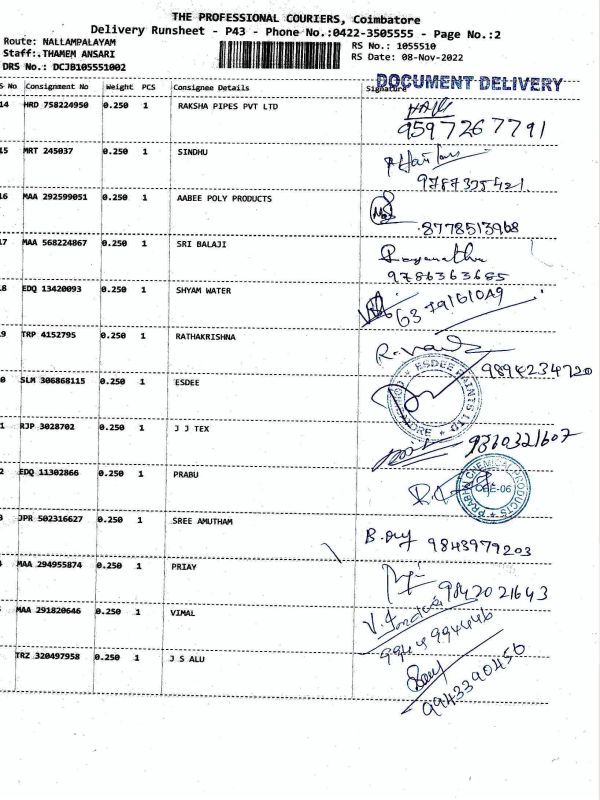 THE PROFESSIONAL COURIERS, Coimbatore
Delivery Runsheet - P43 - Phone No.:0422-3505555 - Page No.:2
Route: NALLAMPALAYAM
RS No.: 1055510
Staff:.THAMEM ANSARI
RS Date: 08-Nov-2022
DRS No.: DCJB105551002
DOCUMENT DELIVERY
S No Consignment No Weight PCS Consignee Details Signature
14 HRD 758224950 0.250 1 RAKSHA PIPES PVT LTD
9597267791
15 MRT 245037 0.250 1 SINDHU
9787375421
16 MAA 292599051 0.250 1 AABEE POLY PRODUCTS
8778513968
17 MAA 568224867 0.250 1 SRI BALAJI
9786363685
8 EDQ 13420093 0.250 1 SHYAM WATER
9 TRP 4152795 0.250 1 RATHAKRISHNA
9894234720
0 SLM 306868115 0.250 1 ESDEE
ESDEE PAINTS LTD
1 RJP 3028702 0.250 1 J J TEX
9360321607
2 EDQ 11302866 0.250 1 PRABU
PRABHU CHEMICAL PRODUCTS
CBE-06
3 JPR 502316627 0.250 1 SREE AMUTHAM
9843979203
MAA 294955874 0.250 1 PRIAY
9842021643
MAA 291820646 0.250 1 VIMAL
9944994446
TRZ 320497958 0.250 1 J S ALU
9943390450